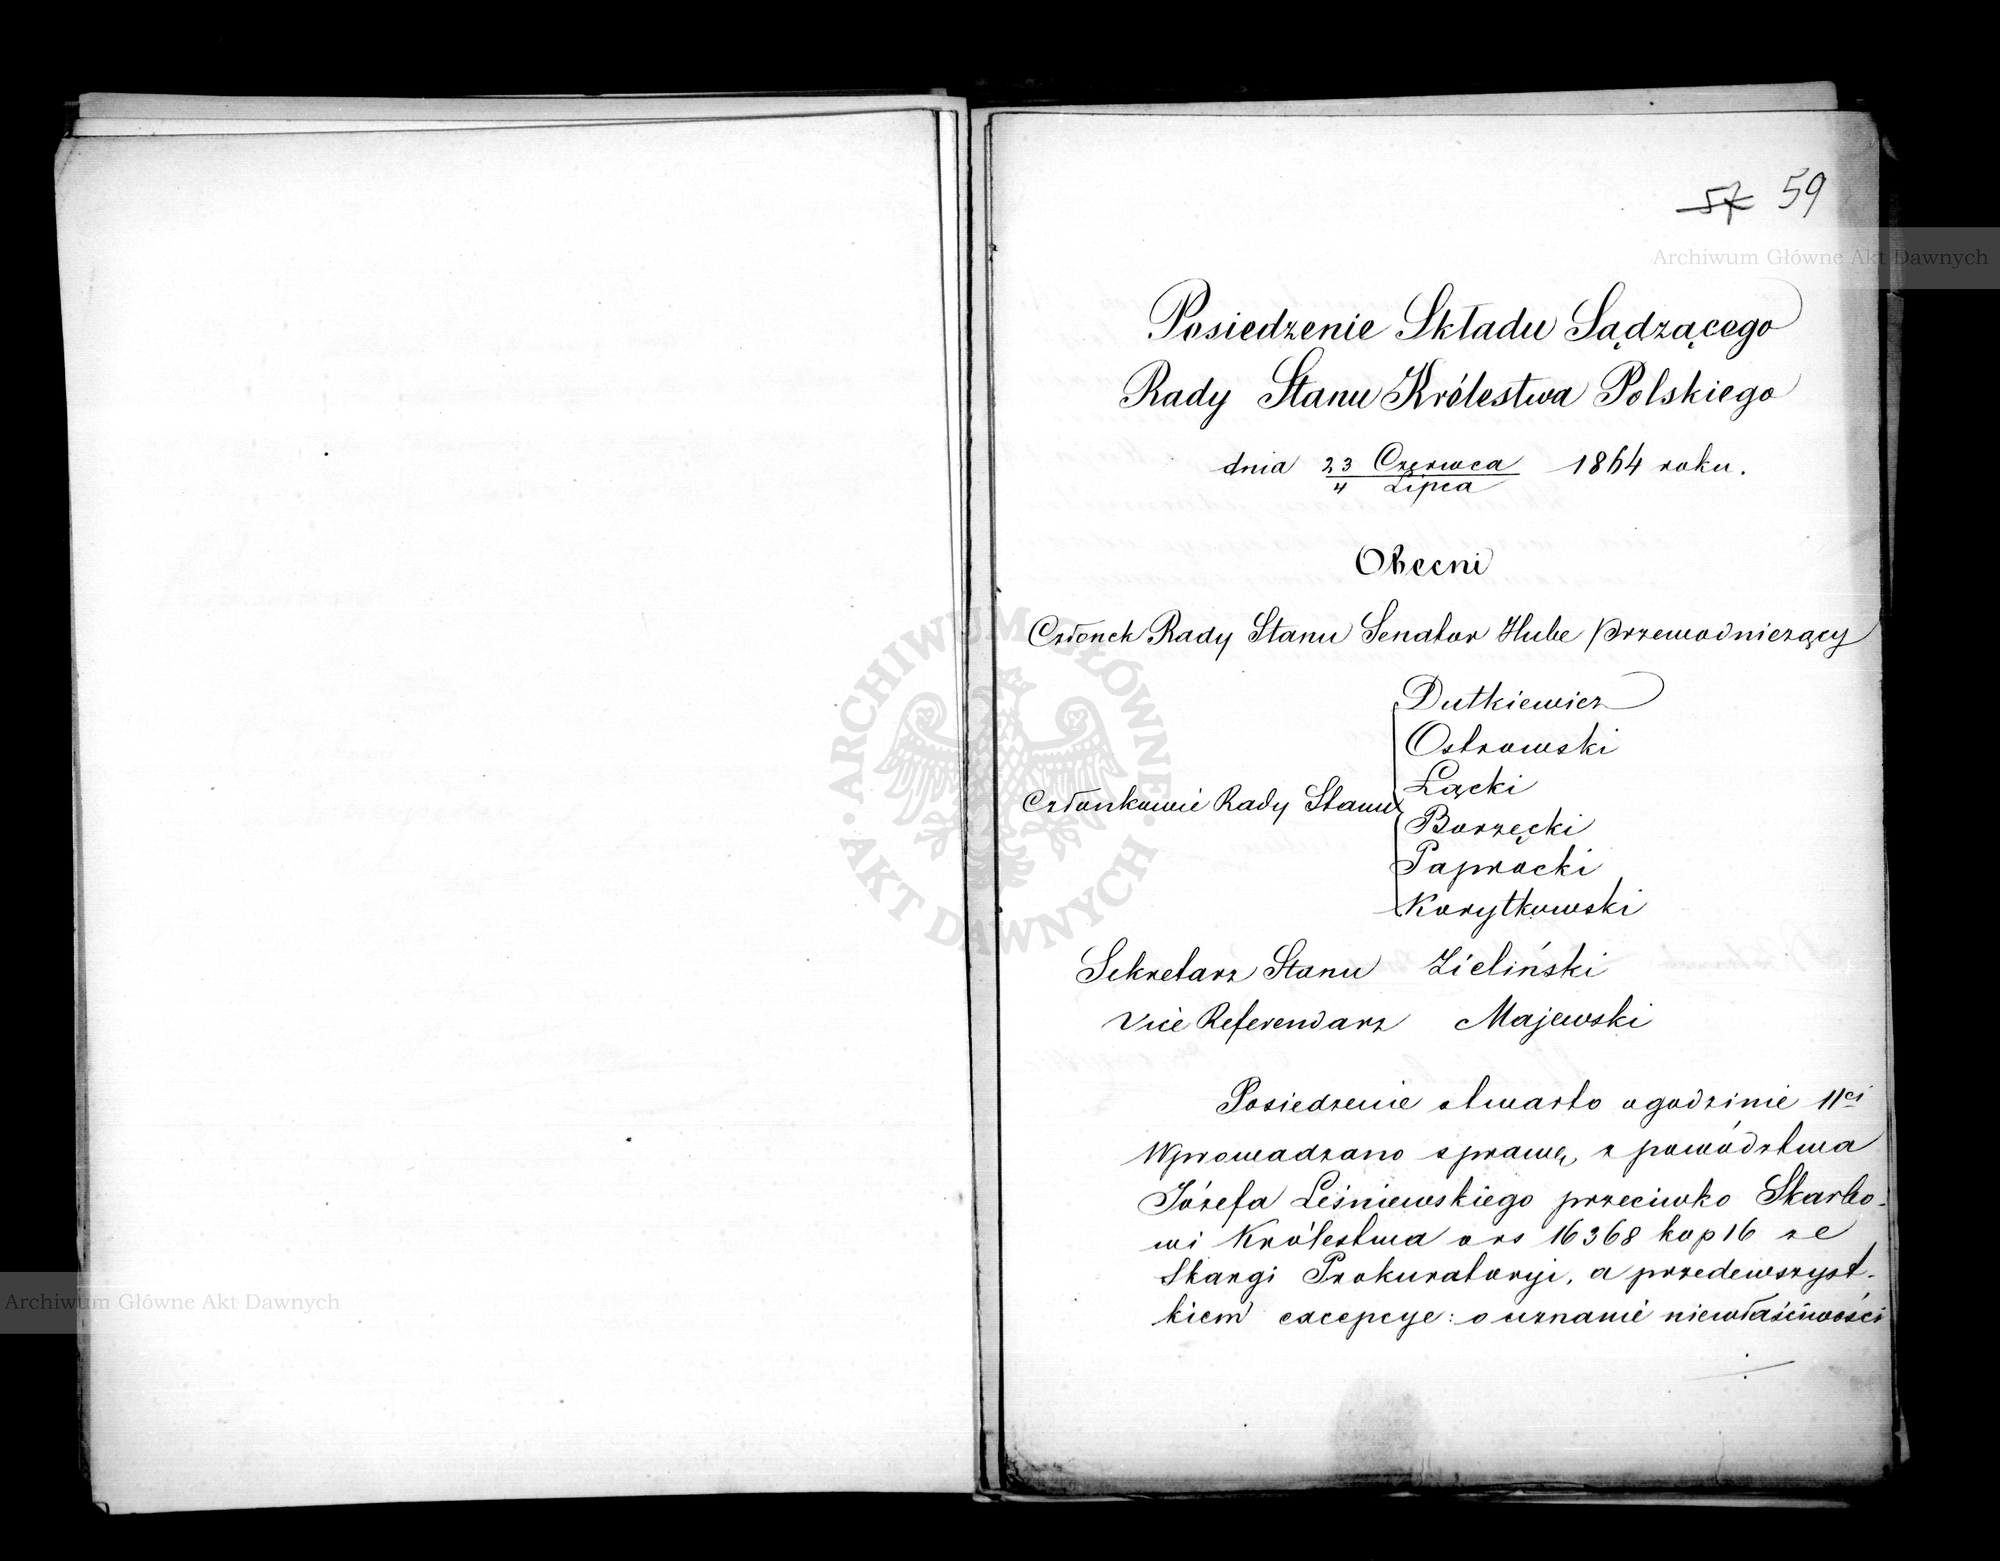 57 59
Archiwum Główne Akt Dawnych
Posiedzenie Składu Sądzącego
Rady Stanu Królestwa Polskiego
dnia 23 Czerwca / 4 Lipca 1864 roku.
Obecni
Członek Rady Stanu Senator Hube Przewodniczący
Członkowie Rady Stanu
Dutkiewicz
Ostrowski
Łącki
Borzęcki
Paprocki
Korytkowski
Sekretarz Stanu Zieliński
Vice Referendarz Majewski
Posiedzenie otwarto o godzinie 11ej
Wprowadzano sprawę, z powództwa
Józefa Leśniewskiego przeciwko Skarbo-
wi Królestwa o rs 16368 kop 16 ze
Skargi Prokuratoryi, a przedewszyst-
kiem excepcye: o uznanie niewłaściwości
ARCHIWUM GŁÓWNE AKT DAWNYCH
Archiwum Główne Akt Dawnych